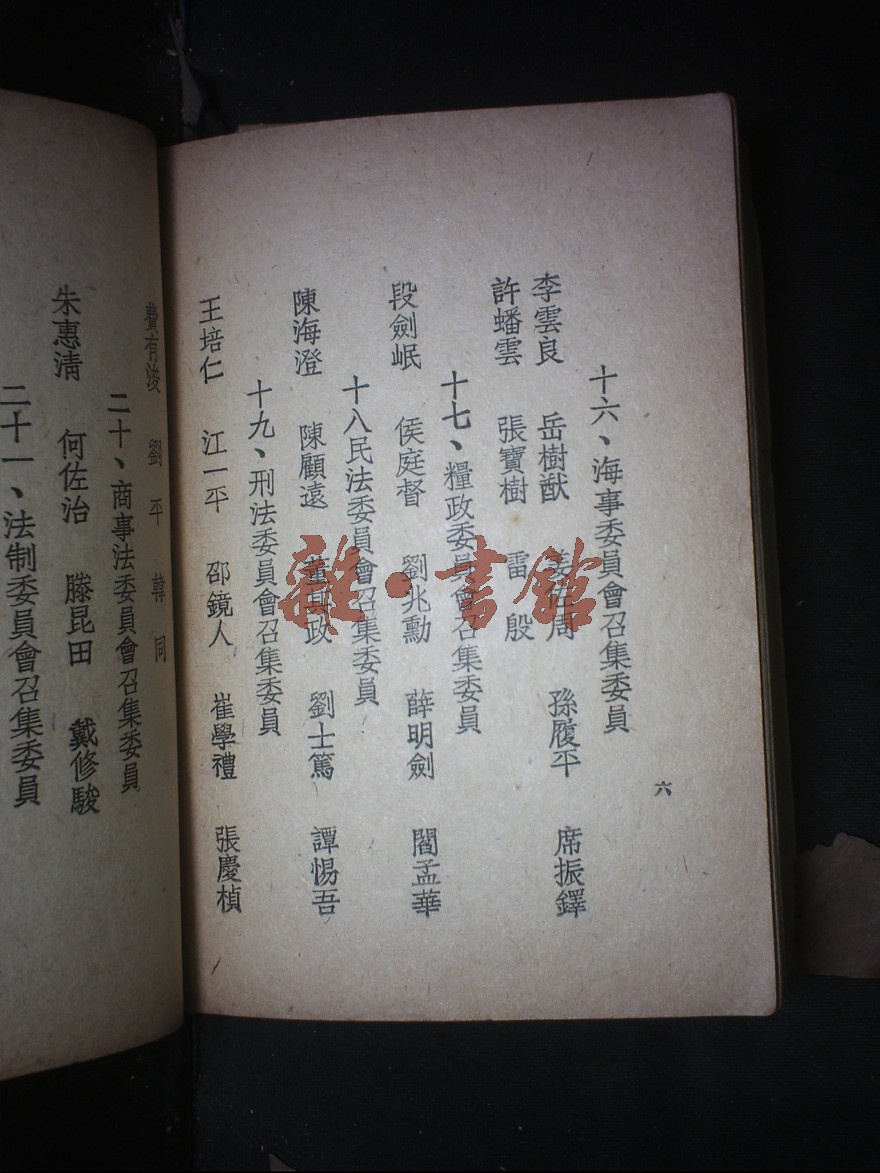 六
十六、海事委員會召集委員
李雲良 岳樹猷 姜佐周 孫履平 席振鐸
許蟠雲 張寶樹 雷殷
十七、糧政委員會召集委員
段劍岷 侯庭督 劉兆勳 薛明劍 閻孟華
十八民法委員會召集委員
陳海澄 陳顧遠 劉士篤 譚惕吾
十九、刑法委員會召集委員
王培仁 江一平 邵鏡人 崔學禮 張慶楨
費有浚 劉平 韓同
二十、商事法委員會召集委員
朱惠清 何佐治 滕昆田 戴修駿
二十一、法制委員會召集委員
雜·書館